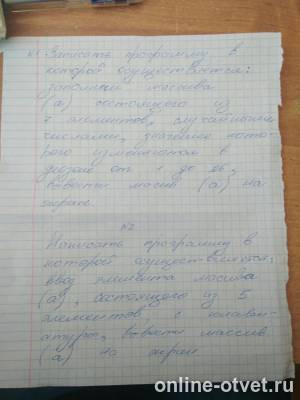 №1 Записать программу в
которой осуществляется:
заполнить массива
(а) состоящего из
7 элементов, случайными
числами, значение кото-
рого изменяются в
от 1 до 26,
вывести массив (а) на
экран.
№2
Написать программу в
которой осуществляется,
ввод элемента масива
(а), состоящего из 5
элементов, с клави-
атуры, вывести массив
(а) на экран
online-otvet.ru